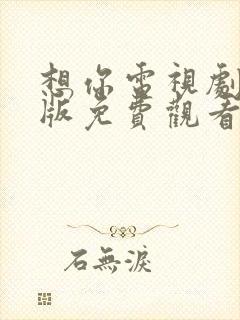 想你電視劇
版免費觀看
石無淚